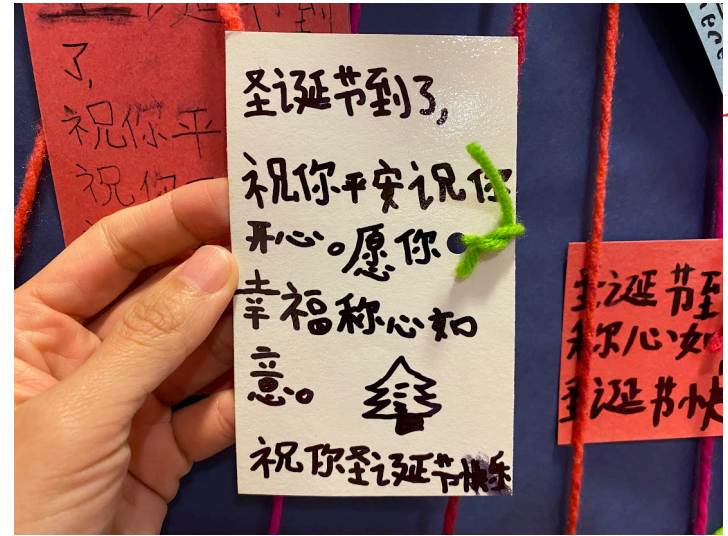 圣诞节到了,
祝你平安祝你
开心。愿你
幸福称心如
意。
祝你圣诞节快乐
诞节到
了,
祝你平
祝你
圣诞节到
称心如
圣诞节快